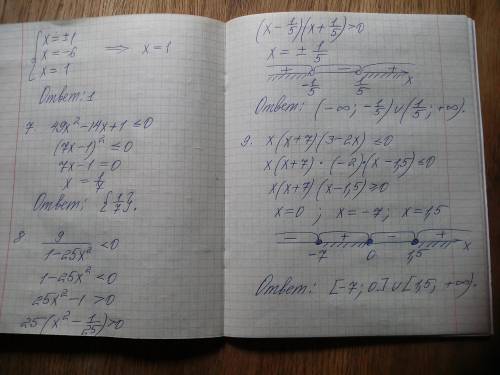 { x = ±1
x = -6 ⟹ x = 1
x = 1
Ответ: 1
7 49x² - 14x + 1 ≤ 0
(7x - 1)² ≤ 0
7x - 1 = 0
x = 1/7
Ответ: {1/7}.
8 9/(1 - 25x²) < 0
1 - 25x² < 0
25x² - 1 > 0
25(x² - 1/25) > 0
(x - 1/5)(x + 1/5) > 0
x = ± 1/5
+ - +
-1/5 1/5 x
Ответ: (-∞; -1/5) ∪ (1/5; +∞).
9. x(x + 7)(3 - 2x) ≤ 0
x(x + 7) · (-2)(x - 1,5) ≤ 0
x(x + 7)(x - 1,5) ≥ 0
x = 0 ; x = -7; x = 1,5
- + - +
-7 0 1,5 x
Ответ: [-7; 0] ∪ [1,5; +∞).